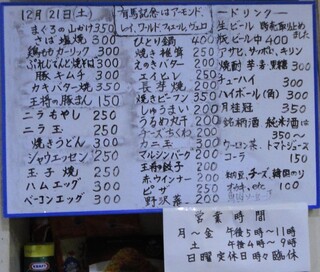 12月21日(土)
まぐろのしかけ 350
さば塩焼 300
鶏ももカリー 300
ぶれじんど焼そば 300
豚キムチ 300
カキバター焼 350
王将の豚まん 150
ニラもやし 250
ニラ玉 300
焼きうどん 300
ジャウエッセン 250
玉子焼 250
ハムエッグ 300
ベーコンエッグ 300
有馬記念はアーモンド、
レイ、ワールド、フィエール、ヴェロ
ひとり鍋 400
焼き椎茸 250
えのきバター 200
エイヒレ 250
長芋焼 200
焼きビーフン 350
しゅうまい 200
ちくわ 200
チーズちくわ 200
カニ玉 300
マルシンバーグ 300
王将餃子 200
赤ウインナー 200
ピザ 250
野沢菜 200
ードリンクー
生ビール
瓶ビール中 400
アサヒ、サッポロ、キリン
焼酎 芋・麦・黒糖 300
チューハイ 300
ハイボール(角) 300
月桂冠 350
銘柄酒 純米酒は
350〜
ウーロン茶、トマトジュース
コーラ 150
納豆、チーズ、韓国のり
100
営業時間
月〜金 午後5時〜11時
土 午後4時〜9時
日曜 定休日 時々臨休